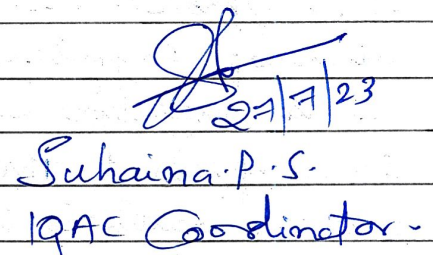 27/7/23
Suhaina.P.S.
IQAC Coordinator.